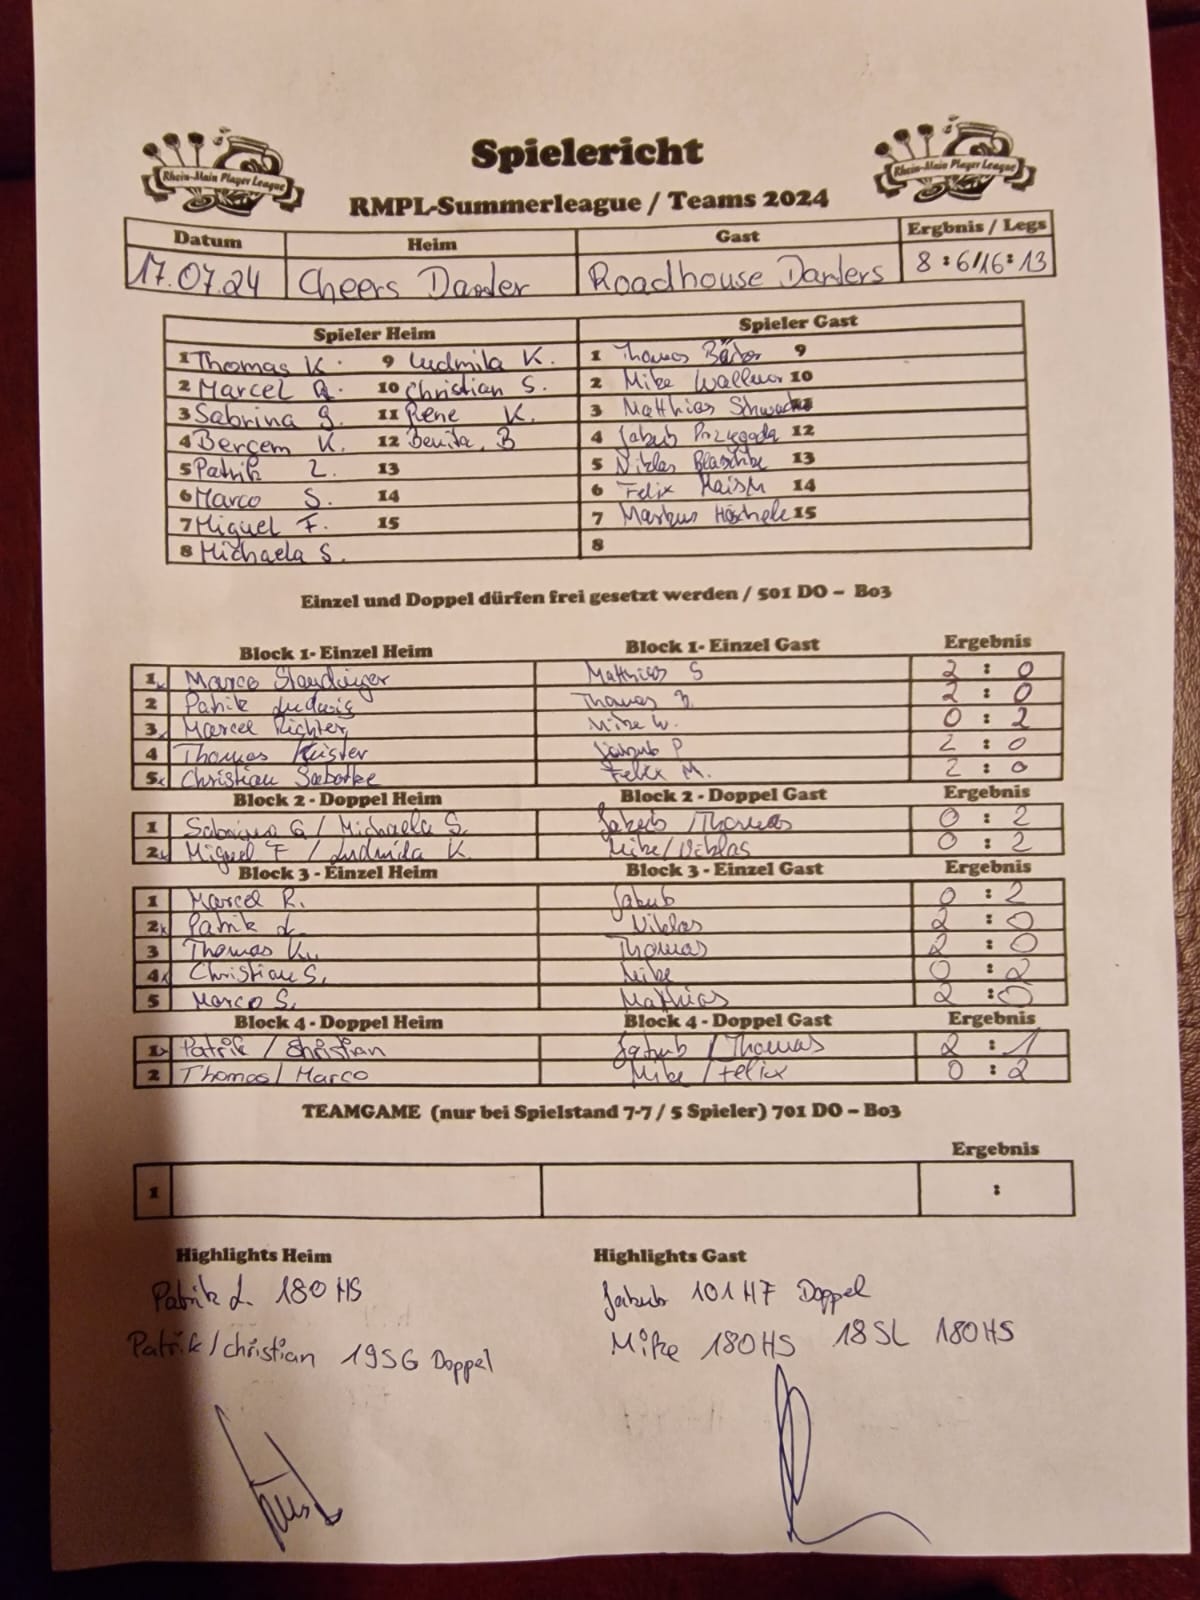 Rhein-Main Player League
Rhein-Main Player League
Spielericht
RMPL-Summerleague / Teams 2024
Datum Heim Gast Ergbnis / Legs
17.07.24 Cheers Darder Roadhouse Darders 8 : 6/16 : 13
Spieler Heim Spieler Gast
1 Thomas K. 9 Ludmila K. 1 Thomas 9
2 Marcel R. 10 Christian S. 2 Mike Wallner 10
3 Sabrina G. 11 Rene K. 3 Matthias
4 Bergem K. 12 Benita. B 4 Jakub Przygoda 12
5 Patrik L. 13 5 Niklas Blaschke 13
6 Marco S. 14 6 Felix 14
7 Miguel F. 15 7 Markus 15
8 Michaela S. 8
Einzel und Doppel dürfen frei gesetzt werden / 501 DO – Bo3
Block 1- Einzel Heim Block 1- Einzel Gast Ergebnis
1 Marco Matthias S 2 : 0
2 Patrik Ludwig Thomas B. 2 : 0
3 Marcel Richter Mike W. 0 : 2
4 Thomas Küster Jakub P 2 : 0
5 Christian Felix M. 2 : 0
Block 2 - Doppel Heim Block 2 - Doppel Gast Ergebnis
1 Sabrina G / Michaela S. Jakub / Thomas 0 : 2
2 Miguel F / Ludmila K. Mike / Niklas 0 : 2
Block 3 - Einzel Heim Block 3 - Einzel Gast Ergebnis
1 Marcel R. Jakub 0 : 2
2 Patrik L. Niklas 2 : 0
3 Thomas K. Thomas 2 : 0
4 Christian S. Mike 0 : 2
5 Marco S. Mathias 2 : 0
Block 4 - Doppel Heim Block 4 - Doppel Gast Ergebnis
1 Patrik / Christian Jakub / Thomas 2 : 1
2 Thomas / Marco Mike / Felix 0 : 2
TEAMGAME (nur bei Spielstand 7-7 / 5 Spieler) 701 DO – Bo3
Ergebnis
1 :
Highlights Heim Highlights Gast
Patrik L. 180 HS Jakub 101 HF Doppel
Patrik / Christian 19SG Doppel Mike 180HS 18SL 180HS